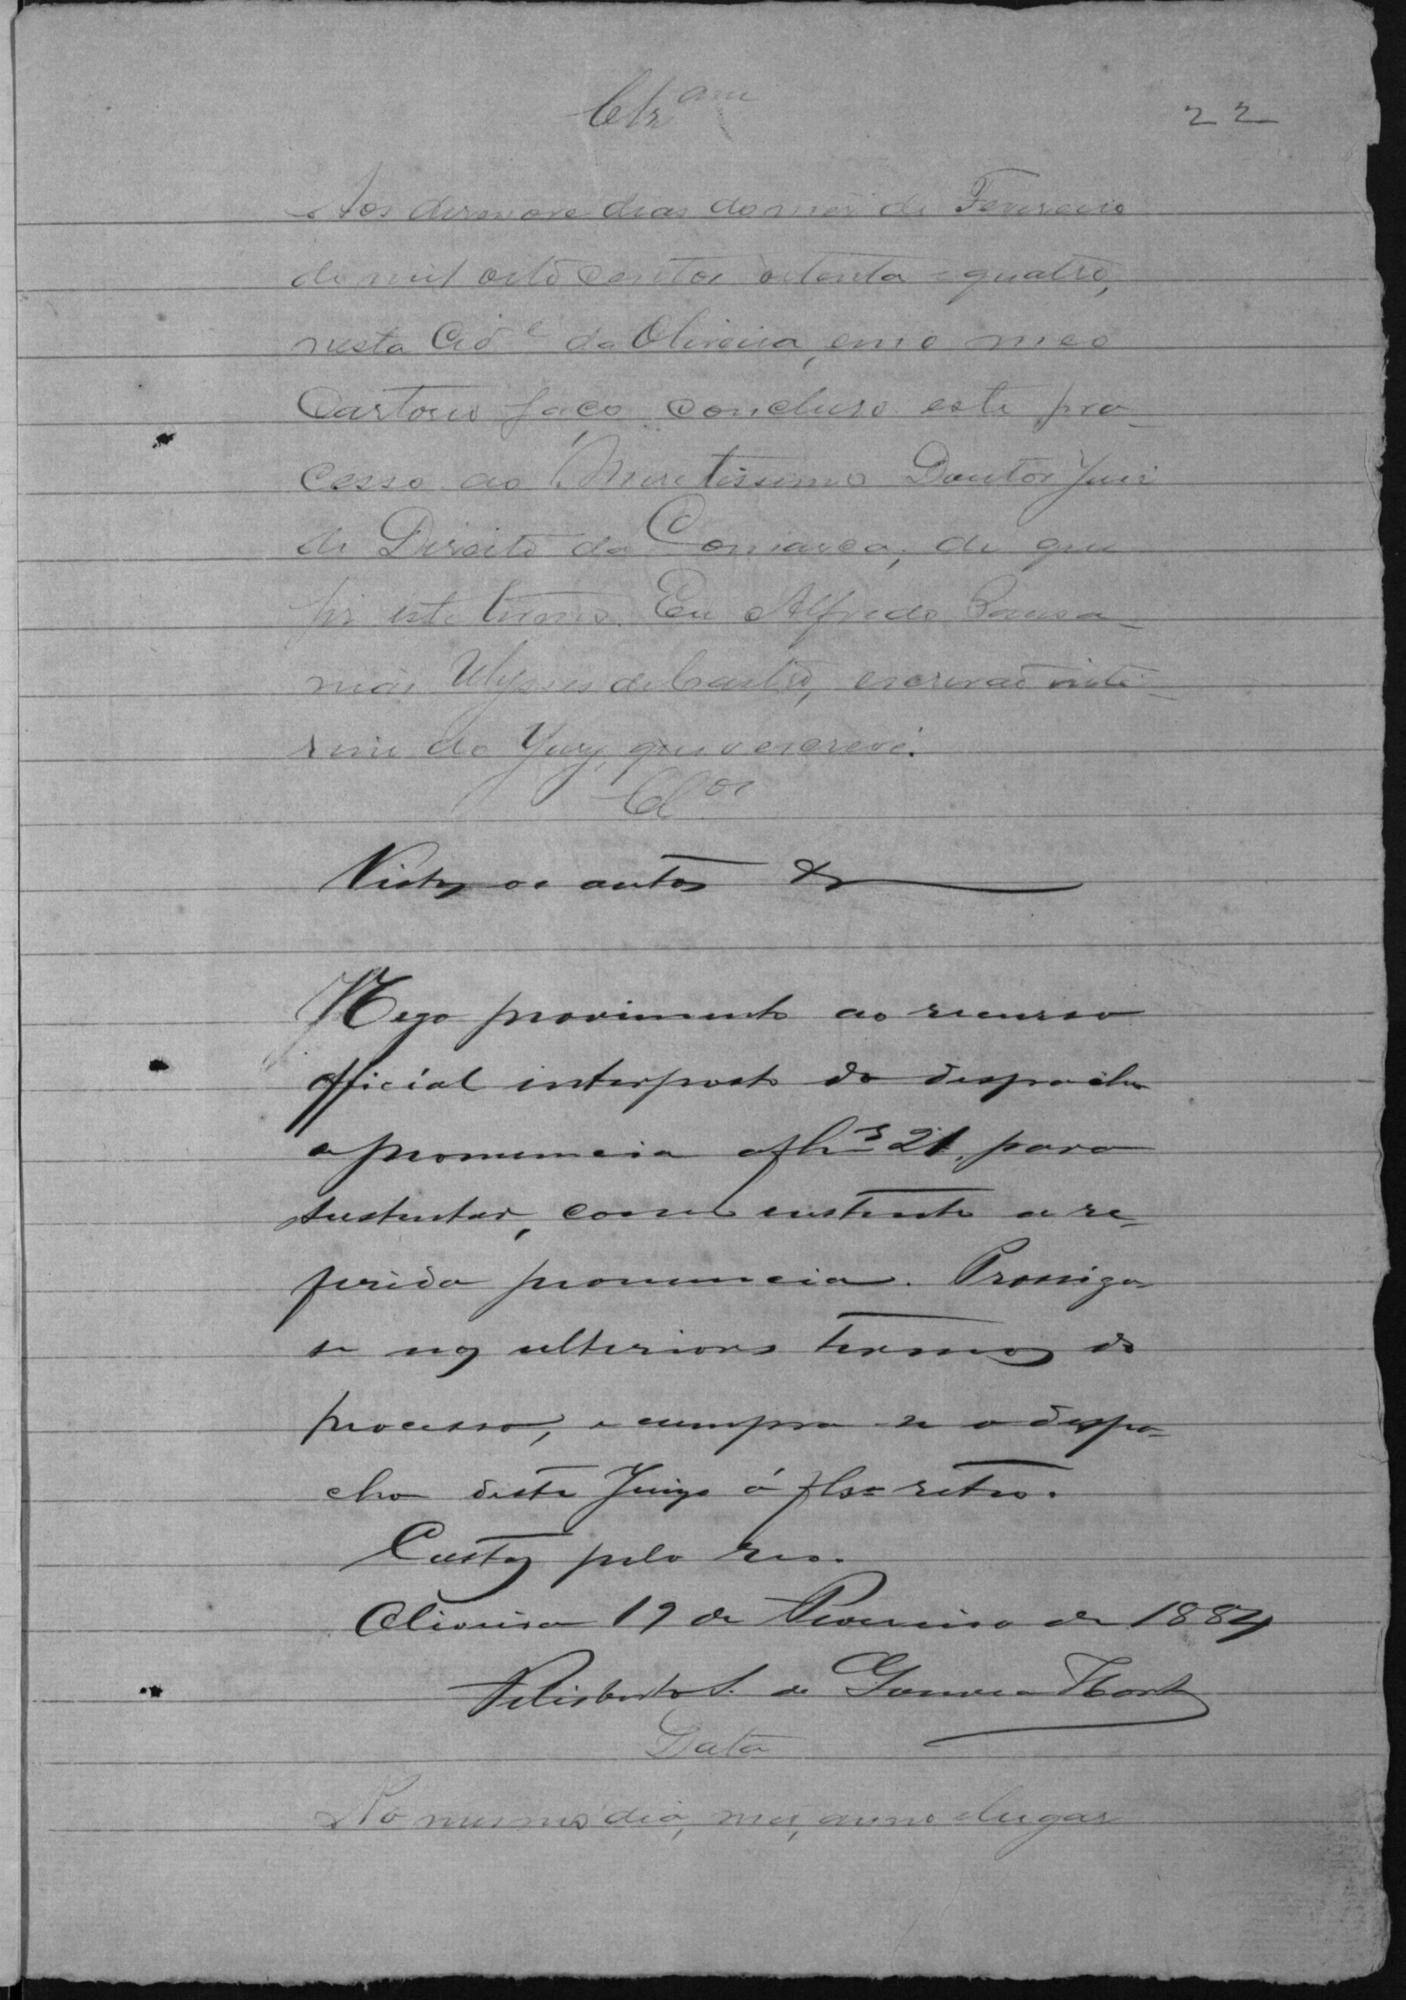 Clz.am
22
Aos dezenove dias do mez de Fevereiro
de mil oito centos oitenta e quatro,
nesta Cid.e da Oliveira, em o meo
Cartorio faço concluso este pro-
cesso ao Meretissimo Doutor Juiz
de Direito da Comarca, de que
fiz este termo. Eu Alfredo Pausa-
nias Ulysses de Castro, escrivão inte-
rino do Jury, que o escrevi.
Cl.os
Vistos os autos &
Nego provimento ao recurso
official interposto do despacho
a pronuncia a flh.s 21, para
sustentar, como sustento a re-
ferida pronuncia. Prosiga
se nos ulteriores termos do
processo, e cumpra-se o despa-
cho deste Juizo á fls retro.
Custas pelo reo.
Oliveira 19 de Fevereiro de 1884
Felisberto S. de Gouvea Horta
Data
No mesmo dia, mez, anno e lugar